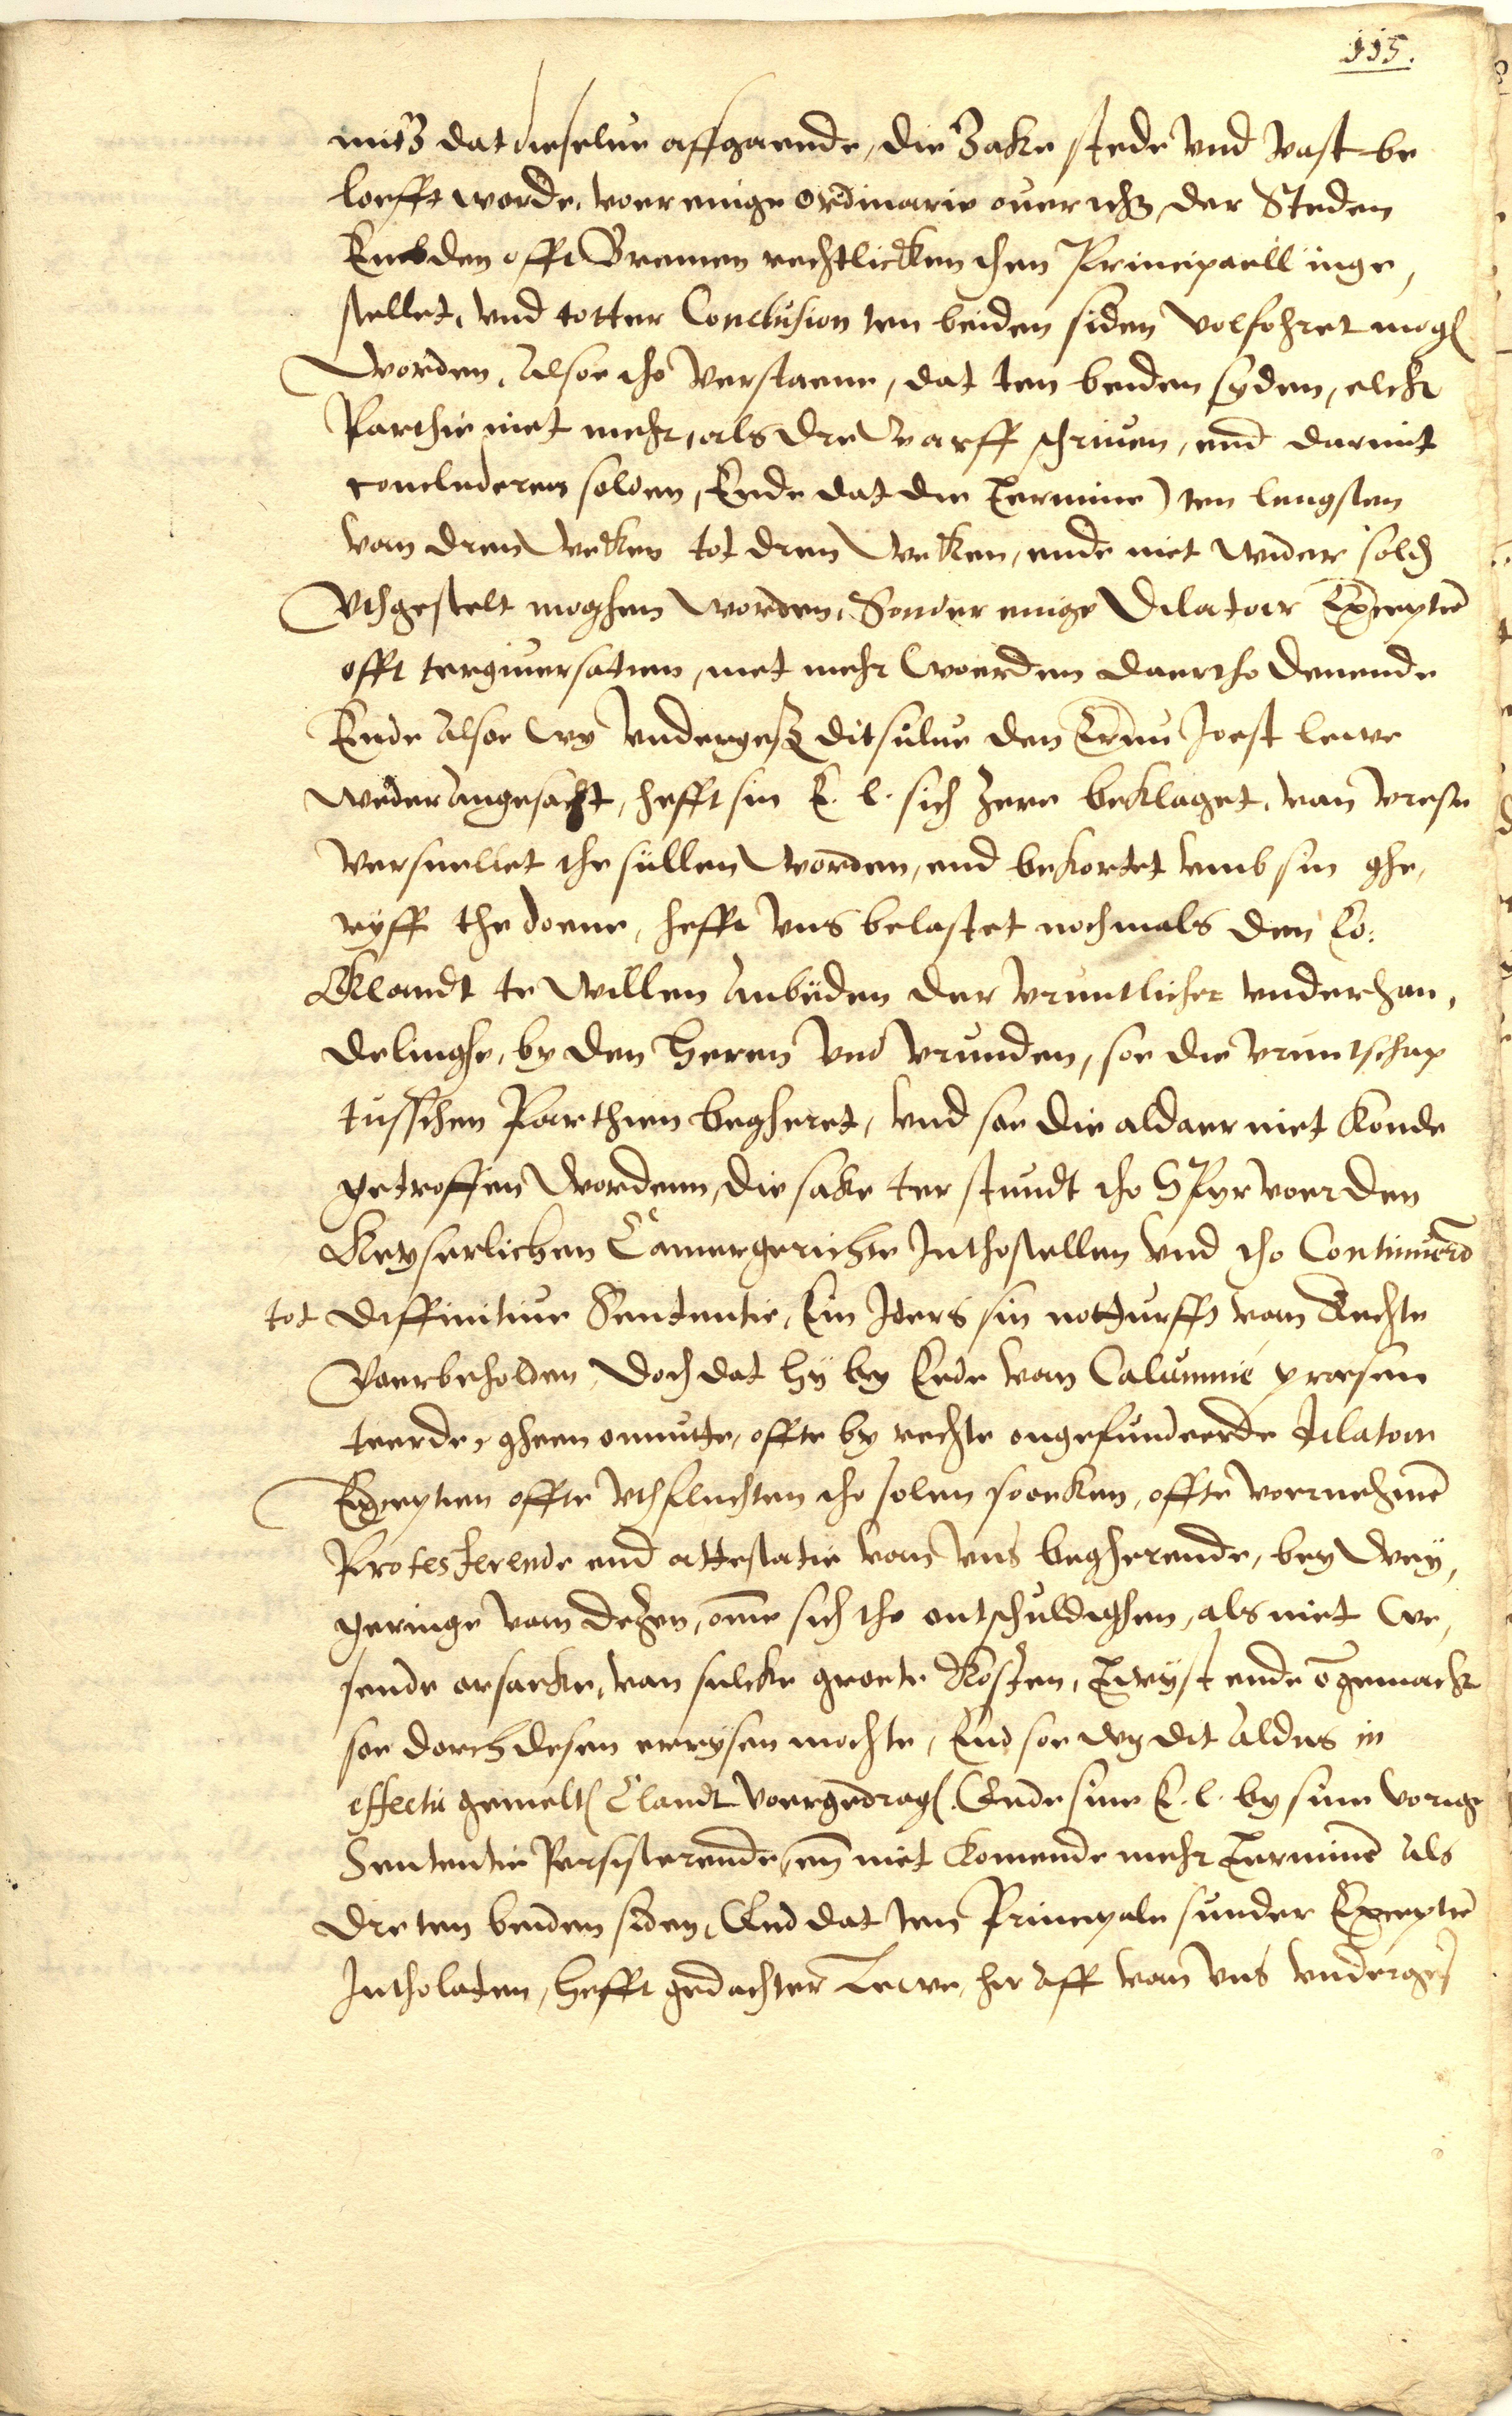 115.
mitz dat dieselue affgaende, die Zake stede vnd vast be
loefft worde, voer einige Ordinarie ouericht, der Steden
Embden offt Bremen rechtlicken then Principaell inge,
stellet, vnd totter Conclusion ten beiden siden volfohret mog
worden, Alsoe tho verstaene, dat ten beiden syden, elck
Parthie niet mehr, als dre warff schriuen, end darmit
concluderen solden, Ende dat die Termine ten lengsten
van dren weken tot dren weken, ende niet wider sold
Vthgestelt moghen worden, Sonder einige Dilatoir Exceptie
offt tergiuersatien, met mehr woerden daertho denende
Ende Alsoe wy vnderges ditsulue den Ernu Joest lewe
weder angesacht, hefft sin E. L. sich zere beklaget, van vrese
versnellet the sullen worden, end bekortet vmb sin ghe,
ryff the doene, hefft vns belastet nochmals den Co:
Ellandt te willen anbieden der vruntlicher vnderhan,
delinghe, by den Heren vnd vrunden, soe die vruntschap
tusschen Parthien begheret, vnd soe die aldaer niet konde
getroffen wordenn, die sake ter stundt tho Spyr voer den
Keyserlichen Camergerichte Inthostellen vnd tho Continuern
tot Diffinitiue Sententie, Ein Iders sin notturfft van Rechte
Voerbeholden, Doch dat hy by Eede van Calumnie presen
teerde, gheen onnutte, offte by rechte ongefundeerde dilatoir
Exceptien offte vthfluchten tho solen soeken, offte voernehme
Protesterende end attestatie van vns begherende, bey wey,
geringe van dezen, ome sich tho entschuldighen, als niet we,
sende orsacke, van sulcke groete Kosten, Twyst ende ogemack
soe dorch desen errysen mochte, End soe wy dit aldus in
effectu gemelt Elandt voergedrag, Ende sine E. L. by sine vorige
Sententie Persisterende, en niet komende mehr Termine als
dre ten beiden siden, End dat ten Principale sunder Exceptie
Intholaten, Hefft gedachter Lewe, her aff van vns vnderges